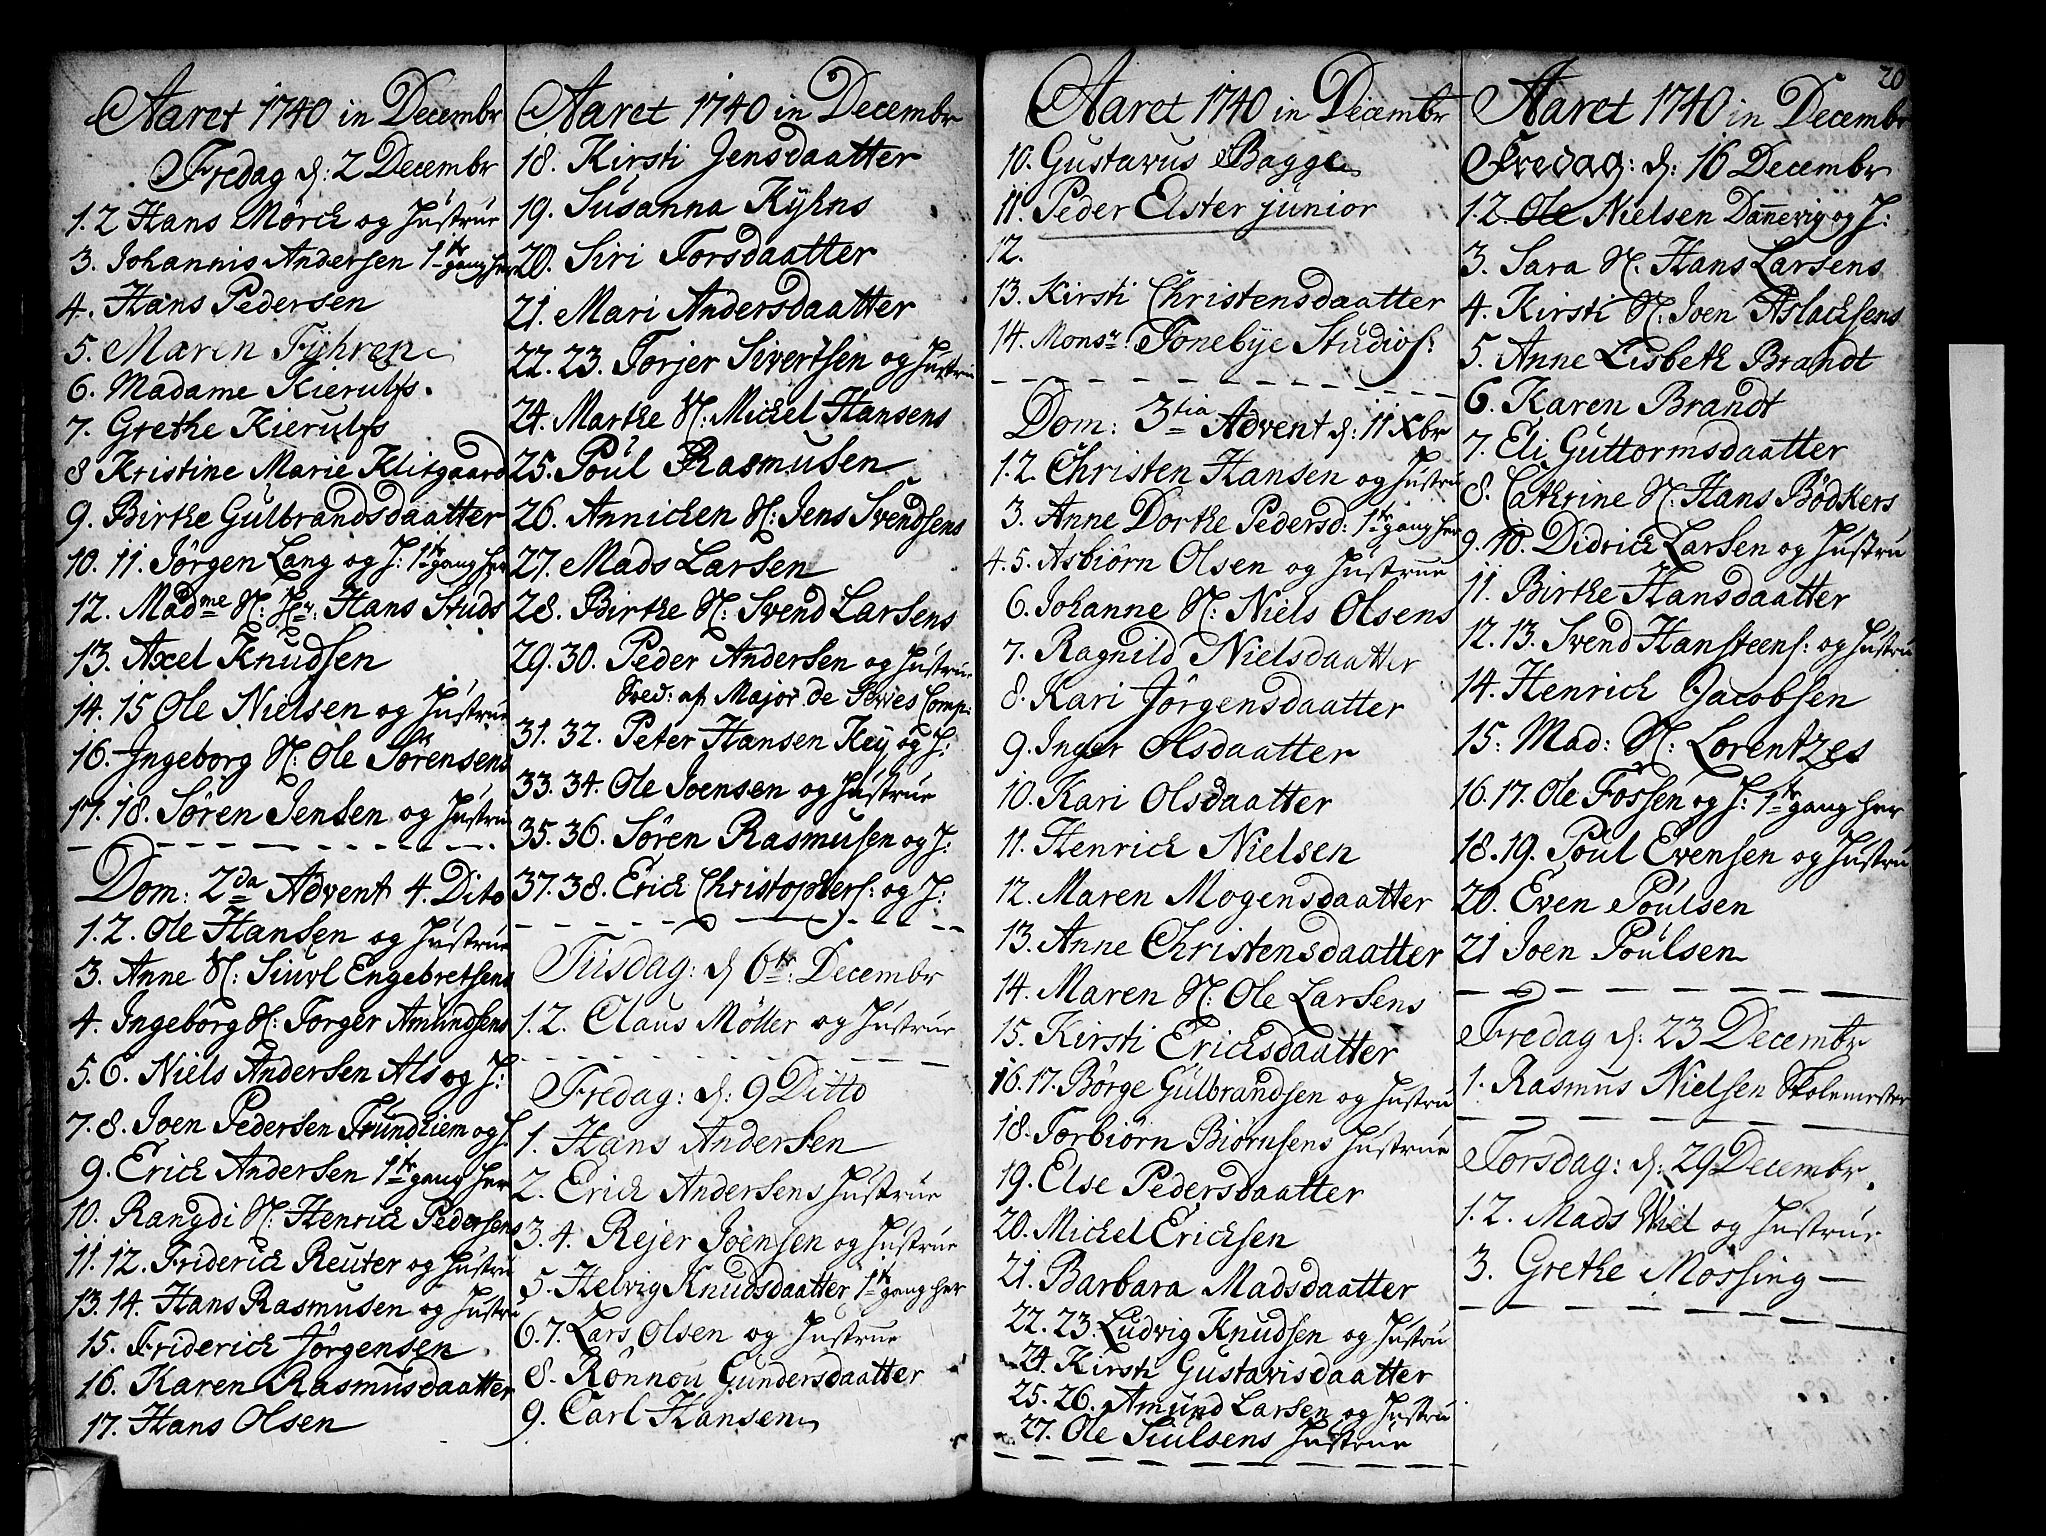 Aaret 1740 in Decembr
Fredag d: 2 Decembr
1. 2 Hans Mörch og Hustrue
3. Johannis Andersen 1te gang her
4. Hans Pedersen
5. Maren Führen
6. Madame Kierulfs.
7. Grethe Kierulfs
8 Kristine Marie Klitgaard
9. Birthe Gulbrandsdaatter
10. 11. Jörgen Lang og H: 1te gang her
12. Madme H: Hr. Hans Studs
13. Axel Knudsen
14. 15 Ole Nielsen og Hustrue
16. Ingeborg H: Ole Sörensens
17. 18. Sören Jensen og Hustru
Dom: 2da Advent 4. Dito
1. 2. Ole Hansen og Hustrue
3. Anne H: Siuvl Engebretsens
4. Ingeborg H: Torger Amundsens
5. 6. Niels Andersen Als og H:
7. 8. Joen Pedersen Trundhiem og H.
9. Erich Andersen 1te gang her
10. Rangdi H: Henrich Pedersens
11. 12. Friderich Reuter og Hustru
13. 14. Hans Rasmusen og Hustru
15. Friderich Jörgensen
16. Karen Rasmusdaatter
17. Hans Olsen
Aaret 1740 in Decembr
18. Kirsti Jensdaatter
19. Susanna Kyhns
20. Siri Torsdaatter
21. Mari Andersdaatter
22. 23. Torjer Sivertsen og Hustru
24. Marthe H: Michel Hansens
25. Poul Rasmusen
26. Annichen H: Jens Svendsens
27. Mads Larsen
28. Birthe H: Svend Larsens
29. 30. Peder Andersen og Hustrue
af Major de Comp:
31. 32. Peter Hansen Key og H:
33. 34. Ole Joensen og Hustrue
35. 36. Sören Rasmusen og H:
37. 38. Erich Christophers: og H:
Tisdag: d 6te: Decembr
1. 2. Claus Möller og Hustrue
Fredag: d: 9 Ditto
1. Hans Andersen
2. Erich Andersens Hustrue
3. 4. Rejer Joensen og Hustrue
5. Helvig Knudsdaatter 1te gang her
6. 7. Lars Olsen og Hustrue
8. Rönnou Gundersdaatter
9. Carl Hansen
Aaret 1740 in Decembr
10. Gustavus Bagge
11. Peder Elster junior
12.
13. Kirsti Christensdaatter
14. Monsr: Tonebye Studios:
Dom: 3tia Advent d: 11 Xbr
1. 2. Christen Hansen og Hustru
3. Anne Dorthe Pedersd: 1te gang her
4. 5. Asbiörn Olsen og Hustrue
6. Johanne H: Niels Olsens
7. Ragnild Nielsdaatter
8. Kari Jörgensdaatter
9. Inger Olsdaatter
10. Kari Olsdaatter
11. Henrich Nielsen
12. Maren Mogensdaatter
13. Anne Christensdaatter
14. Maren H: Ole Larsens
15. Kirsti Erichsdaatter
16. 17. Börge Gulbrandsen og Hustru
18. Torbiörn Biörnsens Hustrue
19. Else Pedersdaatter
20. Michel Erichsen
21. Barbara Madsdaatter
22. 23. Ludvig Knudsen og Hustru
24. Kirsti Gustavisdaatter
25. 26. Amund Larsen og Hustru
27. Ole Siulsens Hustrue
20
Aaret 1740 in Decembr
Fredag: d: 16 Decembr
1. 2. Ole Nielsen Dannevig og H:
3. Sara H: Hans Larsens
4. Kirsti H: Joen Aslachsens
5. Anne Lisbeth Brandt
6. Karen Brandt
7. Eli Guttormsdaatter
8. Cathrine H: Hans Bödkers
9. 10. Didrich Larsen og Hustru
11. Birthe Hansdaatter
12. 13. Svend Hansteens: og Hustru
14. Henrich Jacobsen
15. Mad: H: Lorentzes
16. 17. Ole Fossen og H: 1te gang her
18. 19. Poul Evensen og Hustru
20. Even Poulsen
21 Joen Poulsen
Fredag d: 23 Decembr
1. Rasmus Nielsen Skolemester
Torsdag: d: 29 Decembr.
1. 2. Mads Wiel og Hustrue
3. Grethe Mossing